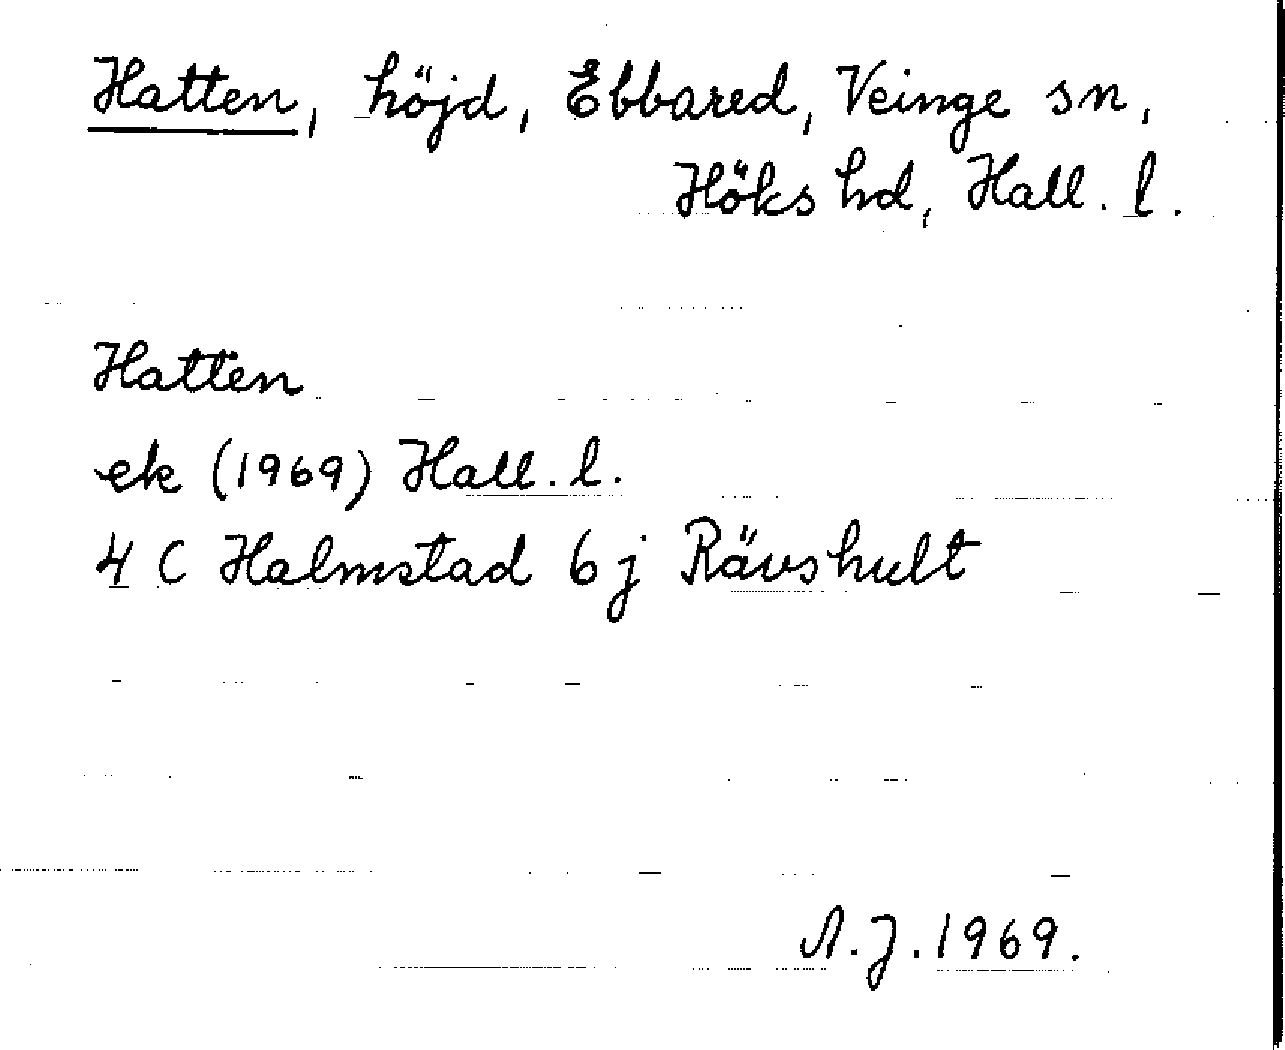 Hatten, höjd, Ebbared, Veinge sn,
Höks hd, Hall. l.
Hatten
ek (1969) Hall. l.
4 C Halmstad 6j Rävshult
A. J. 1969.